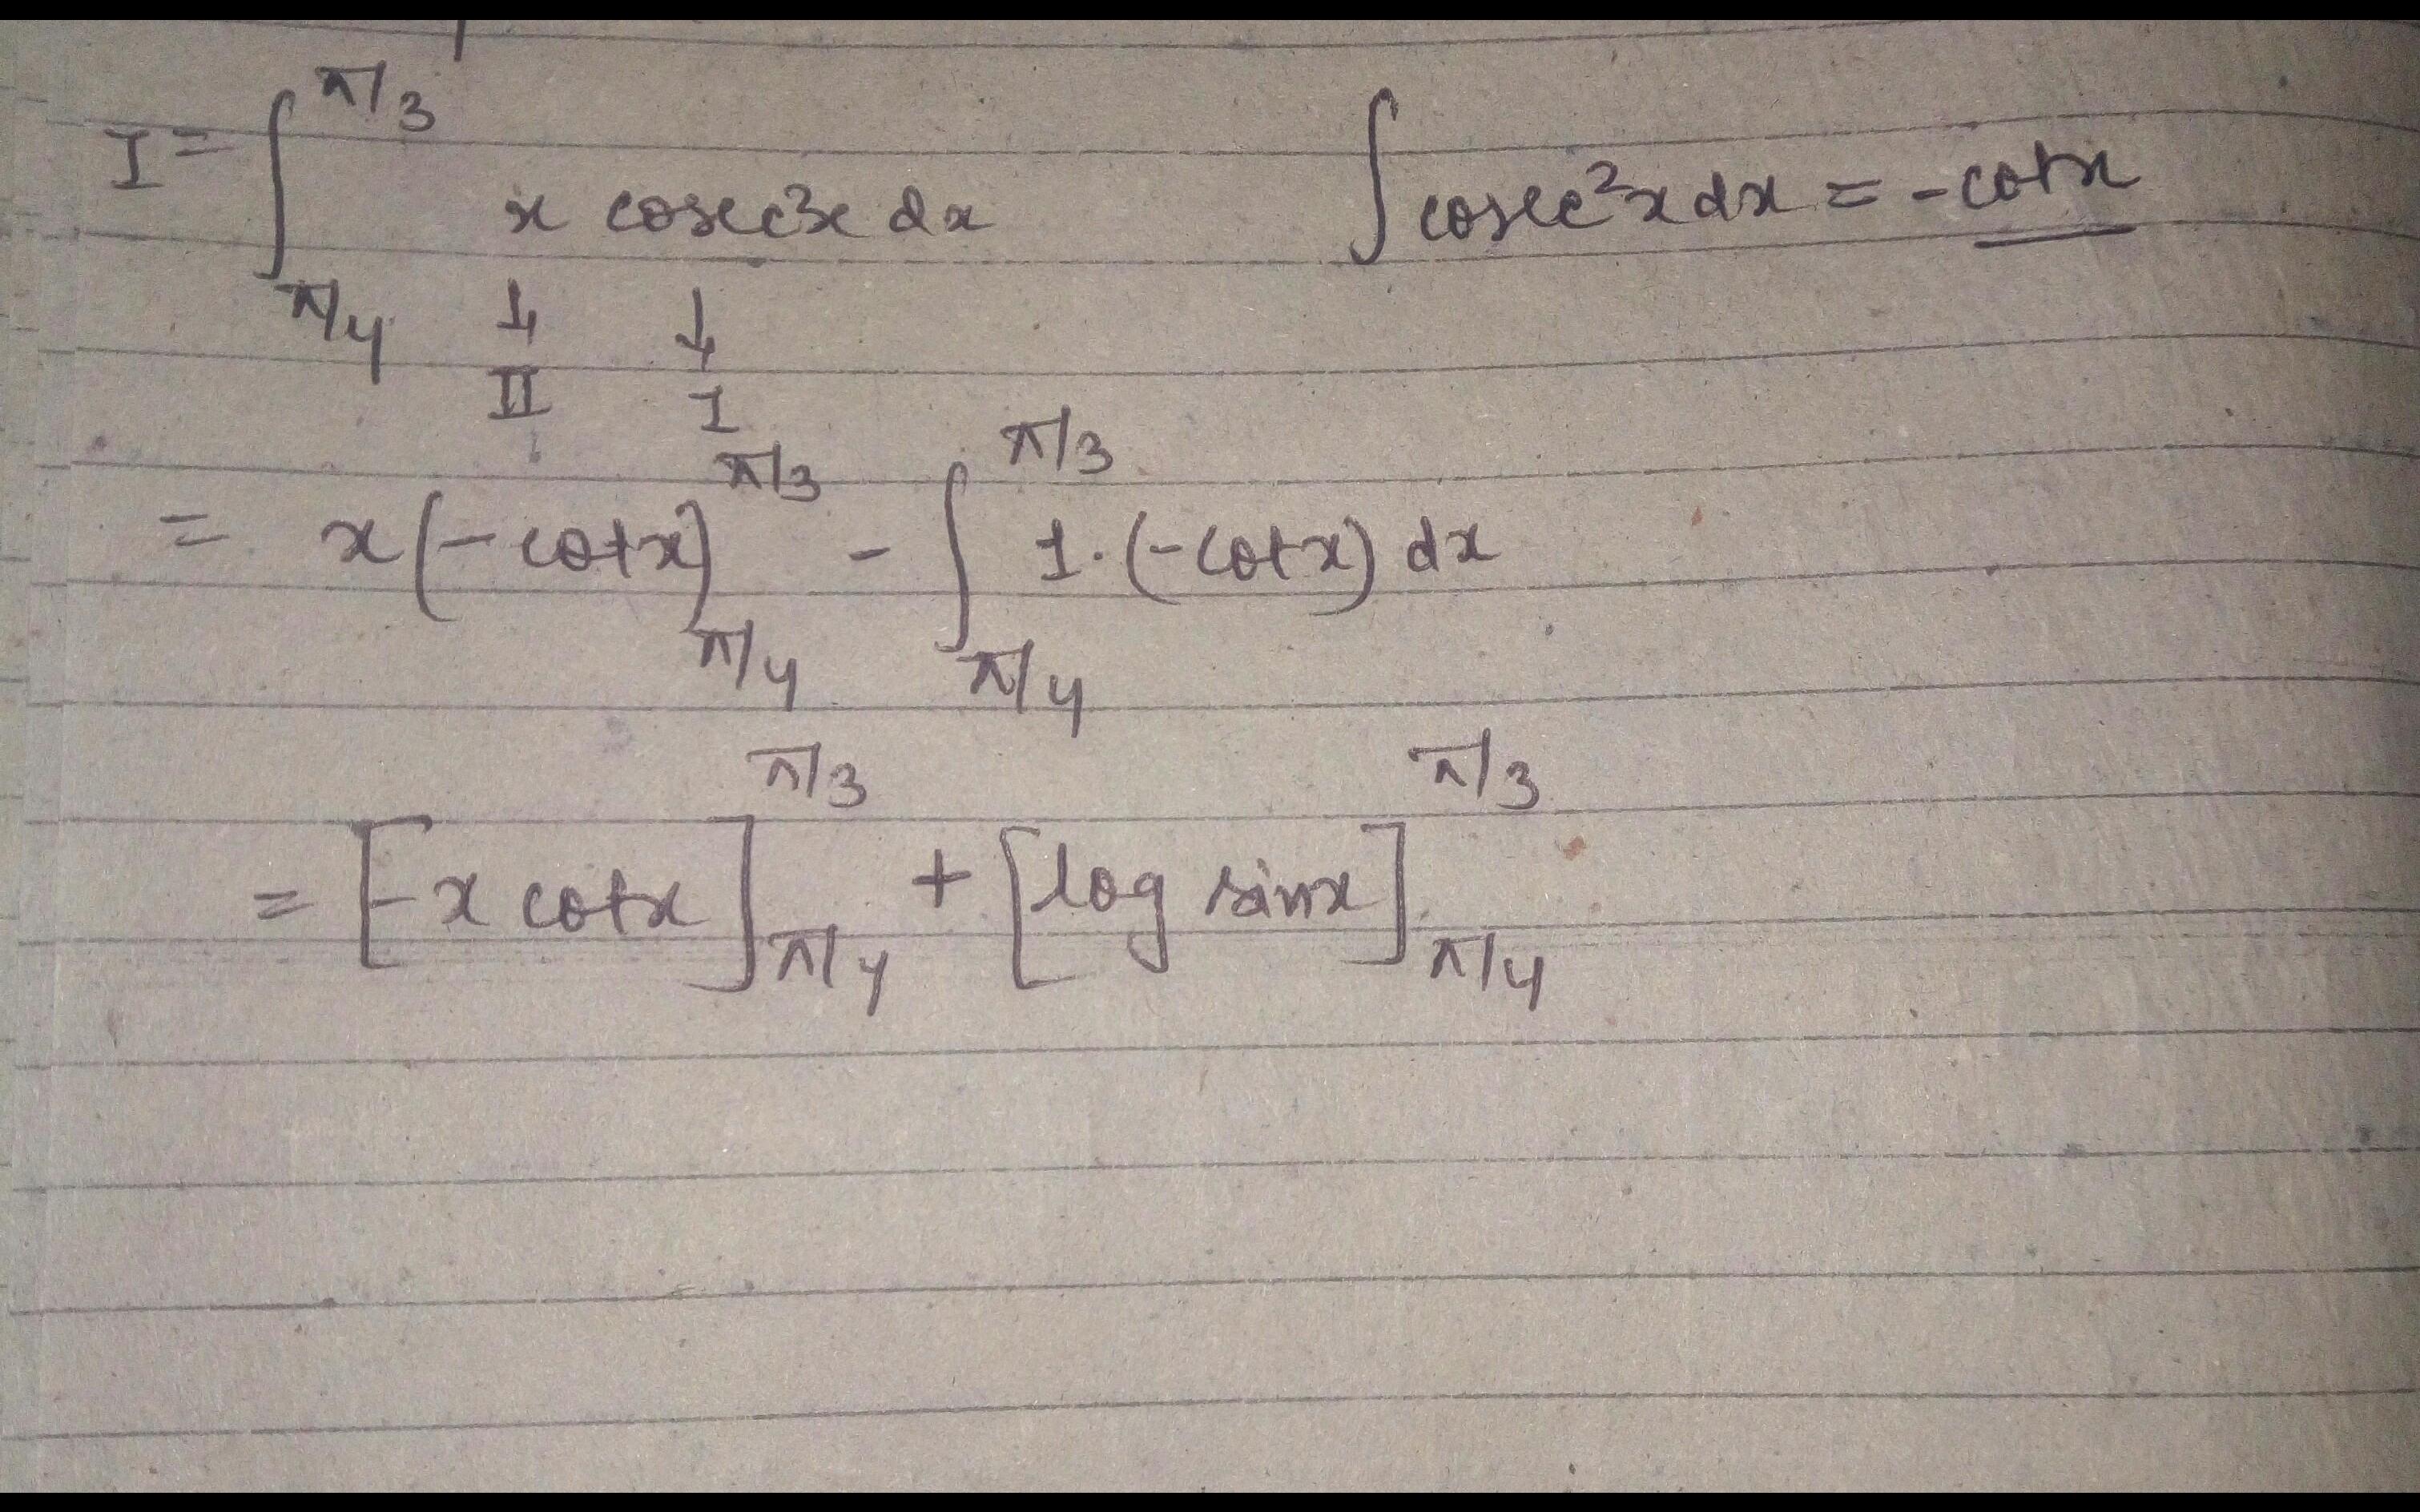 I = ∫_{π/4}^{π/3} x cosec²x dx    ∫ cosec²x dx = -cotx
↓ ↓
II I
= x(-cotx)_{π/4}^{π/3} - ∫_{π/4}^{π/3} 1·(-cotx) dx
= [-x cotx]_{π/4}^{π/3} + [log sinx]_{π/4}^{π/3}